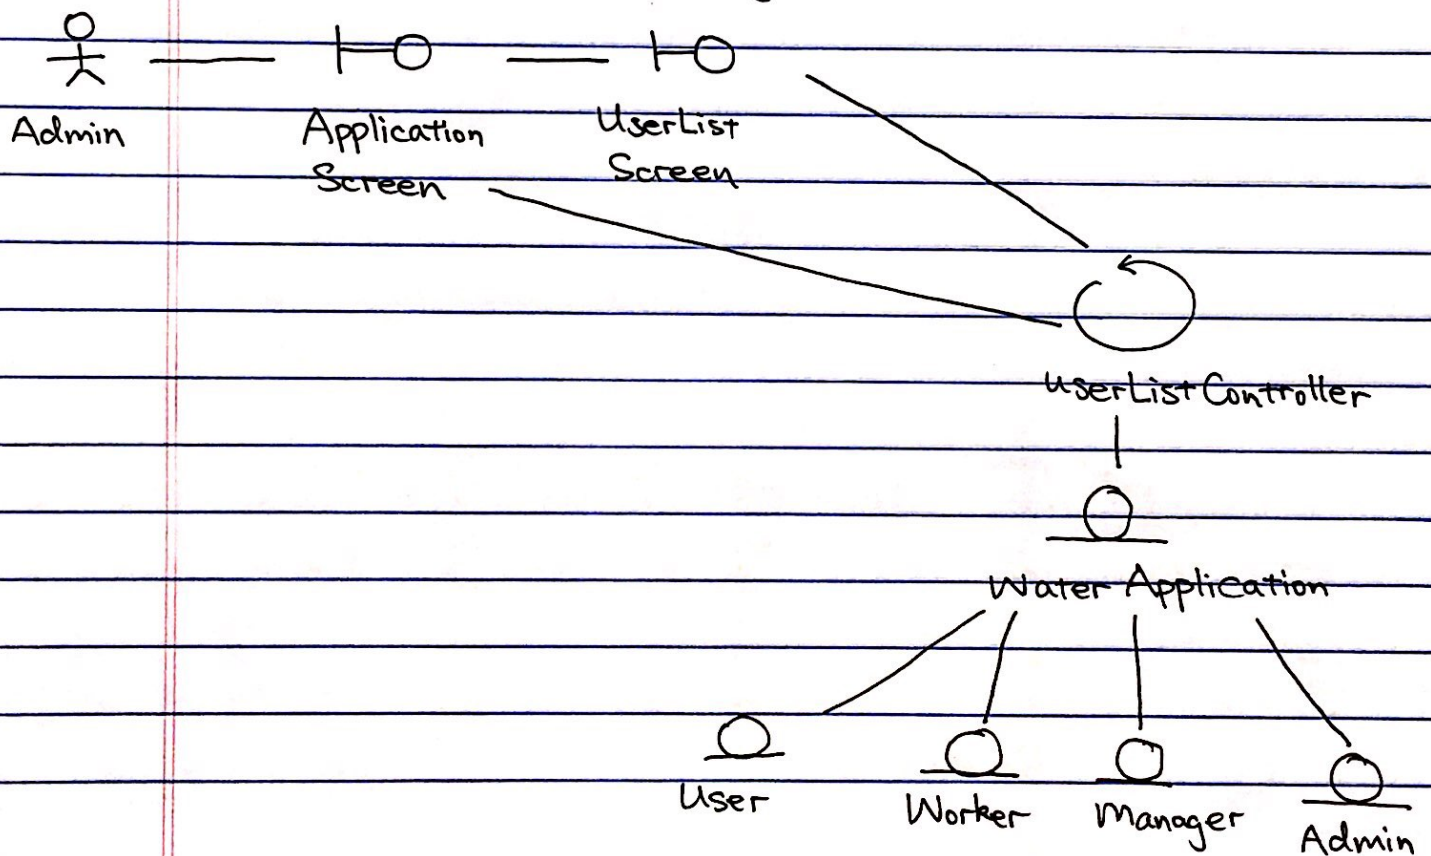 Admin
Application
Screen
UserList
Screen
UserListController
Water Application
User
Worker
Manager
Admin